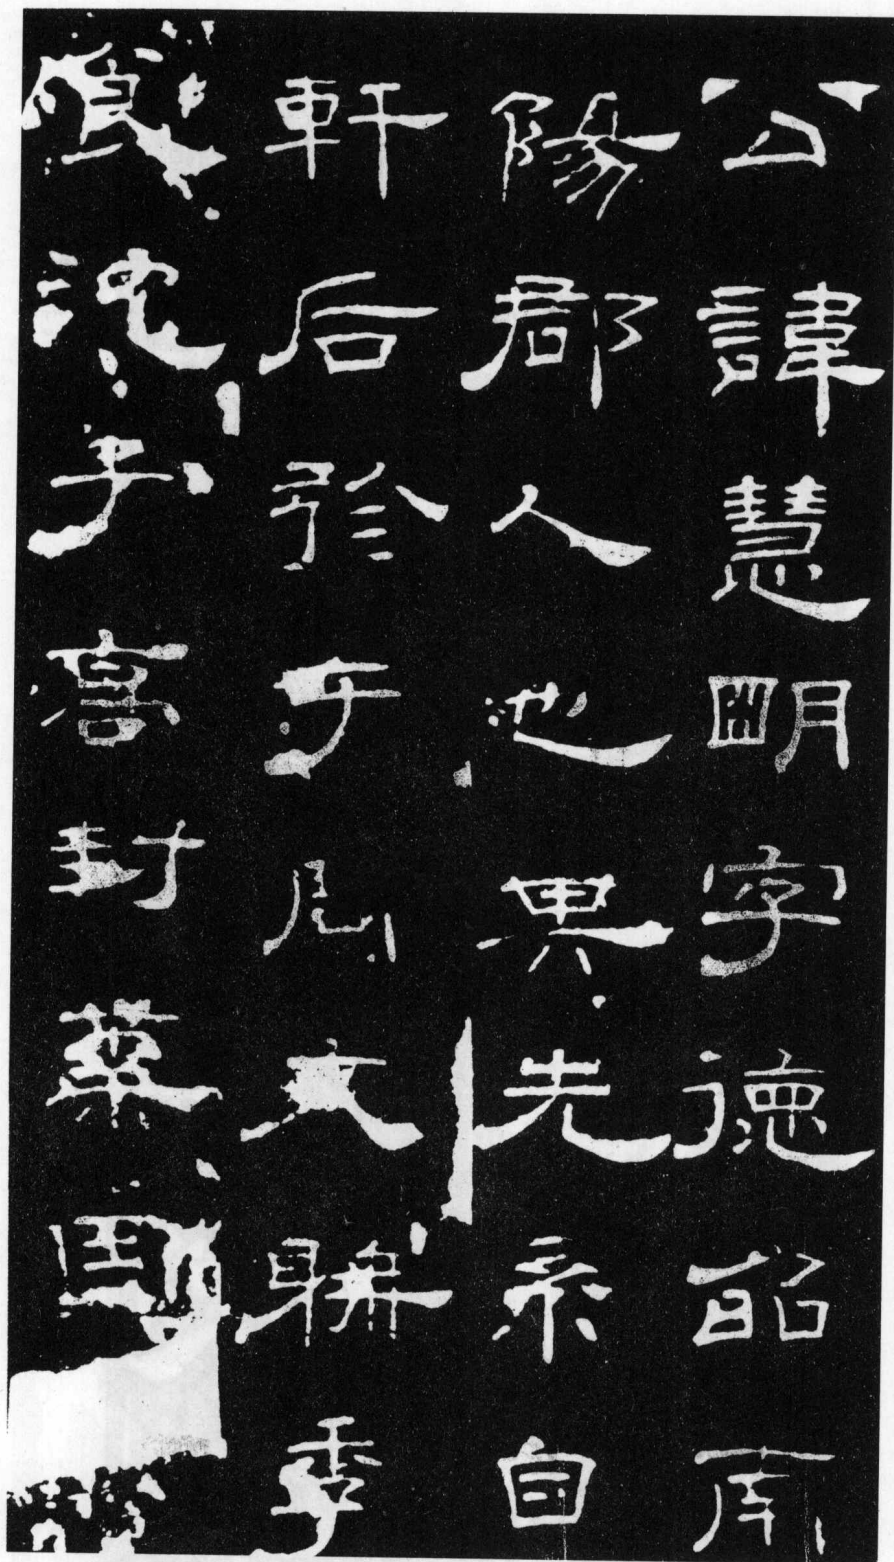 公諱慧明字德昭南
陽郡人也其先系自
軒后弥于周文聃季
食沈子高封葉國